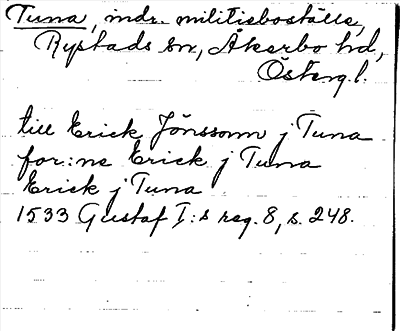 Tuna, indr. militieboställe,
Rystads sn, Åkerbo hd,
Östergl.
till Erick Jönssonn j Tuna
for:ne Erick j Tuna
Erick j Tuna
1533 Gustaf I:s reg. 8, s. 248.